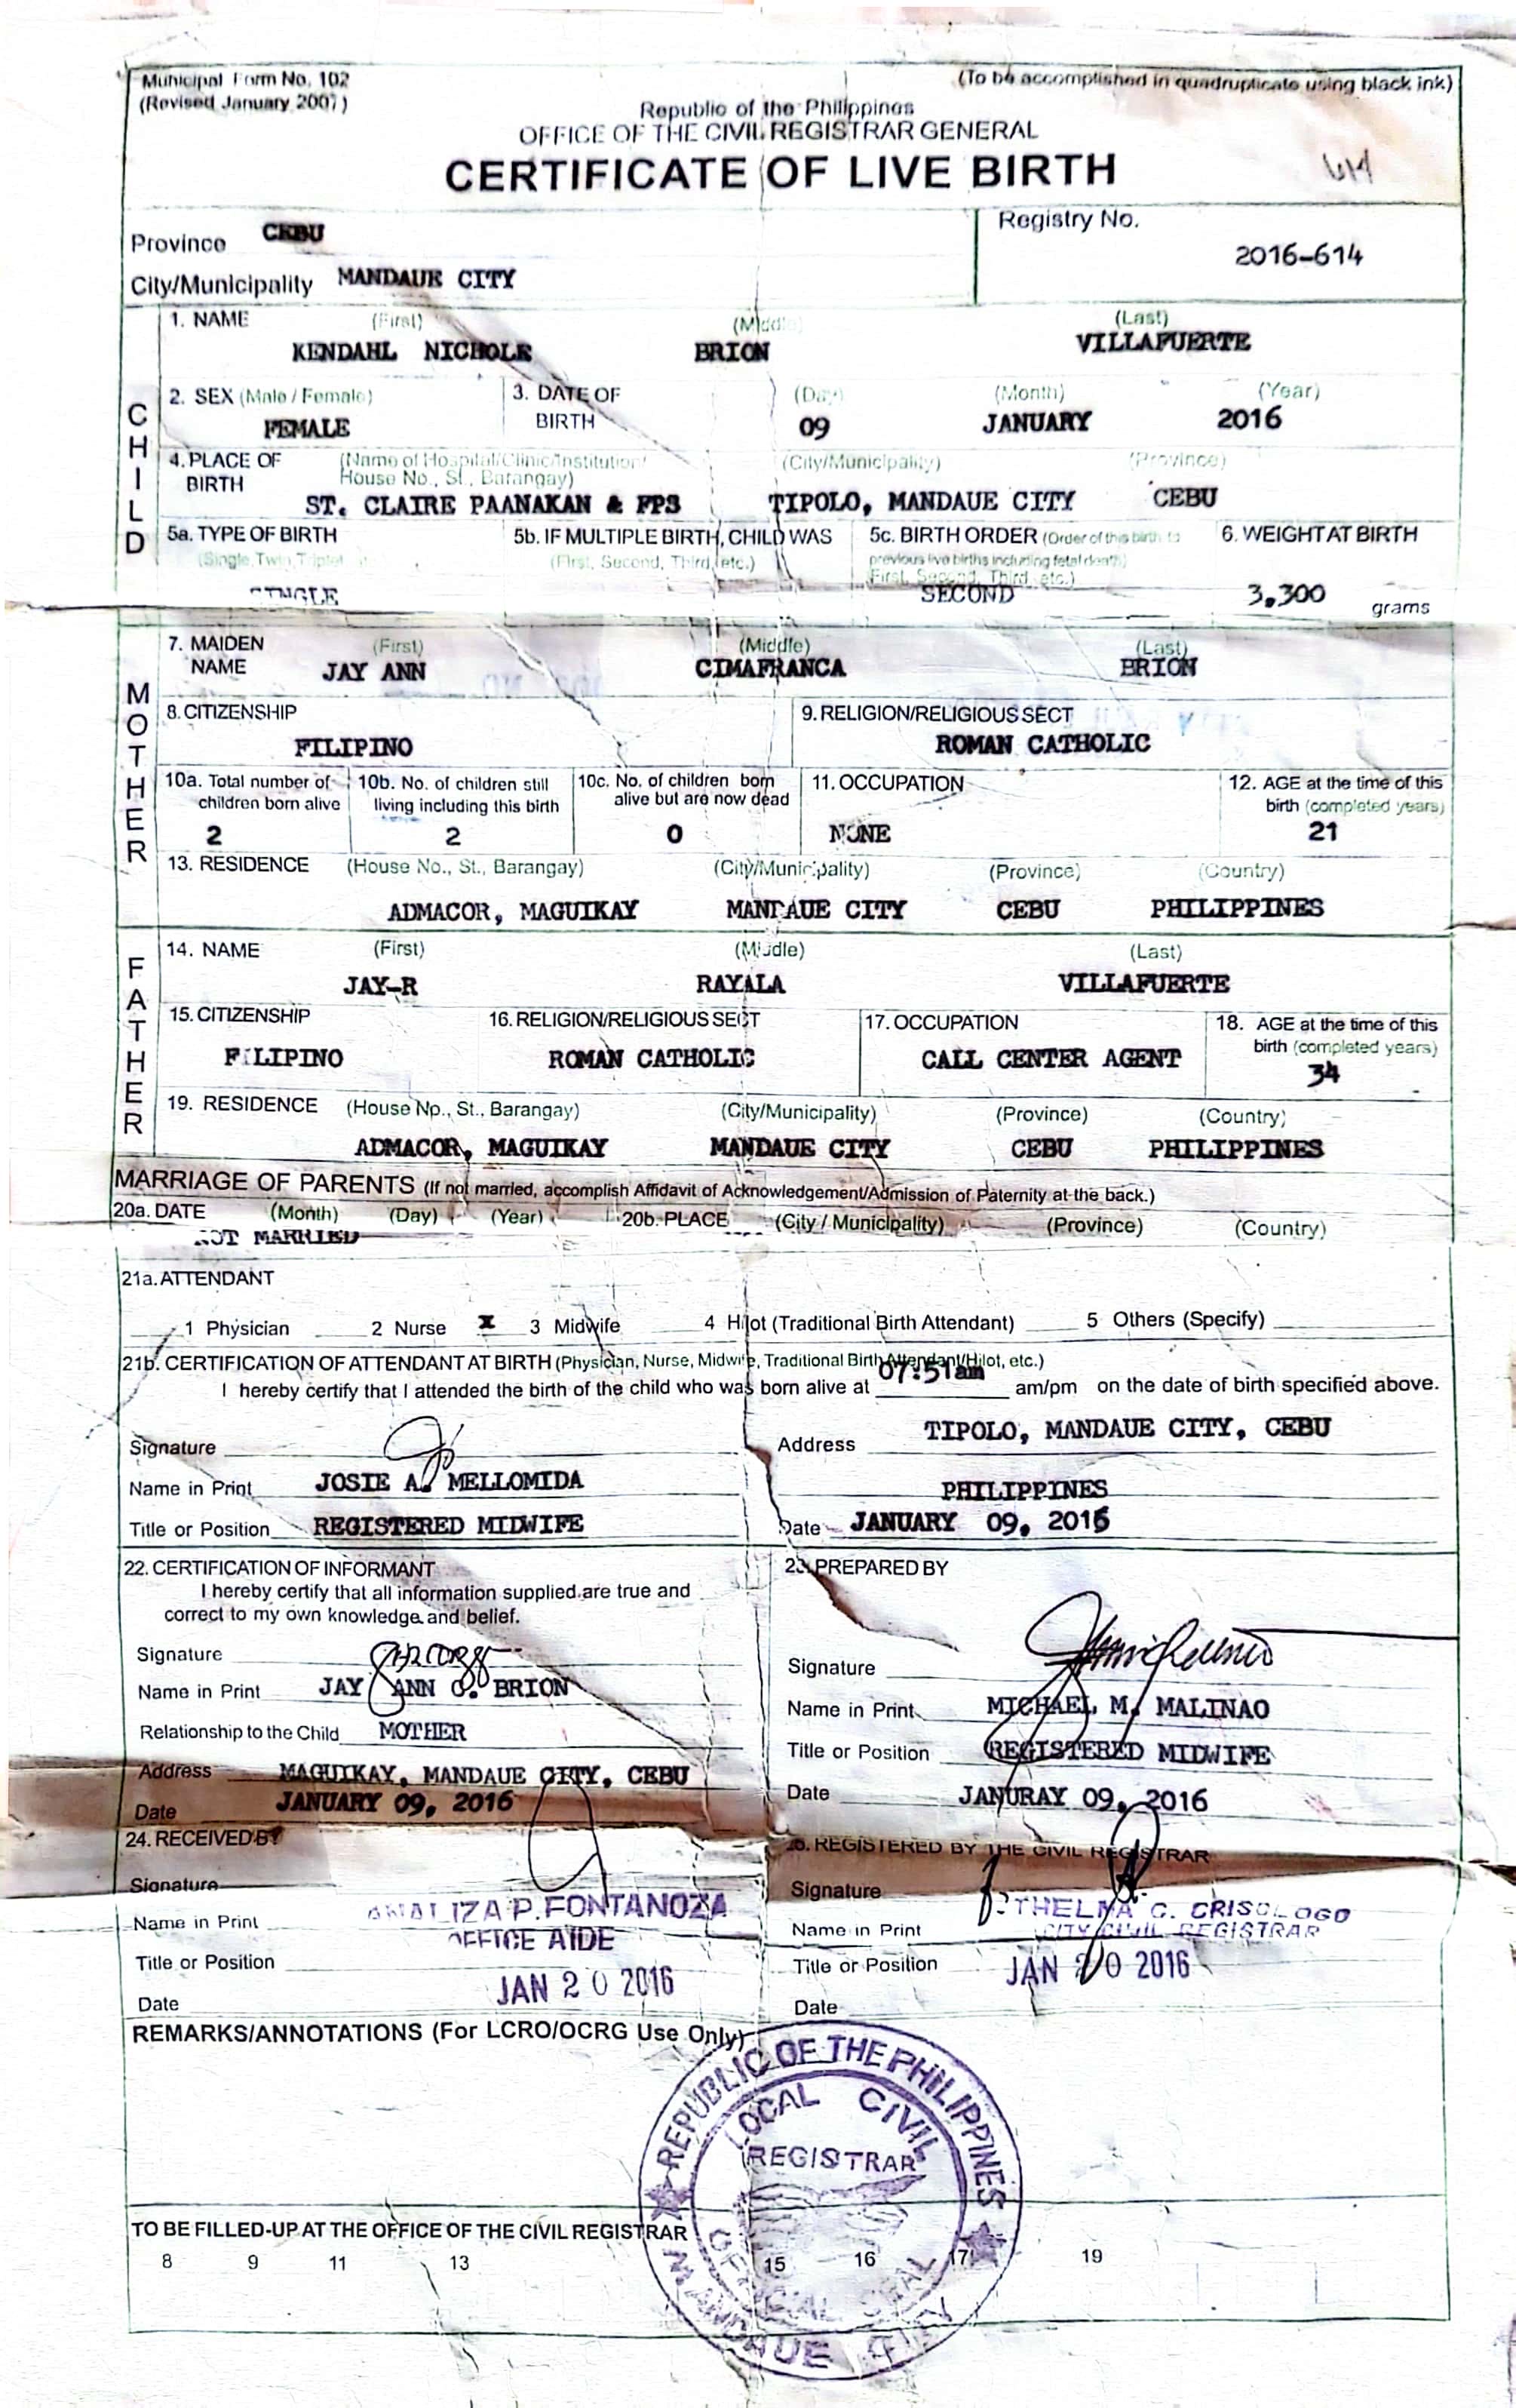 Municipal Form No. 102
(Revised January 2007)
(To be accomplished in quadruplicate using black ink)
Republic of the Philippines
OFFICE OF THE CIVIL REGISTRAR GENERAL
CERTIFICATE OF LIVE BIRTH
614
Province CEBU
Registry No.
2016-614
City/Municipality MANDAUE CITY
CHILD
1. NAME (First) (Middle) (Last)
KENDAHL NICHOLE BRION VILLAFUERTE
2. SEX (Male / Female) 3. DATE OF BIRTH (Day) (Month) (Year)
FEMALE 09 JANUARY 2016
4. PLACE OF BIRTH (Name of Hospital/Clinic/Institution/ House No., St., Barangay) (City/Municipality) (Province)
ST. CLAIRE PAANAKAN & FPS TIPOLO, MANDAUE CITY CEBU
5a. TYPE OF BIRTH 5b. IF MULTIPLE BIRTH, CHILD WAS 5c. BIRTH ORDER (Order of this birth to previous live births including fetal death) 6. WEIGHT AT BIRTH
(Single, Twin, Triplet (First, Second, Third, etc.) (First, Second, Third, etc.)
SINGLE SECOND 3,300 grams
MOTHER
7. MAIDEN NAME (First) (Middle) (Last)
JAY ANN CIMAFRANCA BRION
8. CITIZENSHIP 9. RELIGION/RELIGIOUS SECT
FILIPINO ROMAN CATHOLIC
10a. Total number of children born alive 10b. No. of children still living including this birth 10c. No. of children born alive but are now dead 11. OCCUPATION 12. AGE at the time of this birth (completed years)
2 2 0 NONE 21
13. RESIDENCE (House No., St., Barangay) (City/Municipality) (Province) (Country)
ADMACOR, MAGUIKAY MANDAUE CITY CEBU PHILIPPINES
FATHER
14. NAME (First) (Middle) (Last)
JAY-R RAYALA VILLAFUERTE
15. CITIZENSHIP 16. RELIGION/RELIGIOUS SECT 17. OCCUPATION 18. AGE at the time of this birth (completed years)
FILIPINO ROMAN CATHOLIC CALL CENTER AGENT 34
19. RESIDENCE (House No., St., Barangay) (City/Municipality) (Province) (Country)
ADMACOR, MAGUIKAY MANDAUE CITY CEBU PHILIPPINES
MARRIAGE OF PARENTS (If not married, accomplish Affidavit of Acknowledgement/Admission of Paternity at the back.)
20a. DATE (Month) (Day) (Year) 20b. PLACE (City / Municipality) (Province) (Country)
NOT MARRIED
21a. ATTENDANT
1 Physician 2 Nurse X 3 Midwife 4 Hilot (Traditional Birth Attendant) 5 Others (Specify)
21b. CERTIFICATION OF ATTENDANT AT BIRTH (Physician, Nurse, Midwife, Traditional Birth Attendant/Hilot, etc.)
I hereby certify that I attended the birth of the child who was born alive at 07:51am am/pm on the date of birth specified above.
Signature
Address TIPOLO, MANDAUE CITY, CEBU
Name in Print JOSIE A. MELLOMIDA
PHILIPPINES
Title or Position REGISTERED MIDWIFE
Date JANUARY 09, 2016
22. CERTIFICATION OF INFORMANT
I hereby certify that all information supplied are true and
correct to my own knowledge and belief.
Signature
Name in Print JAY ANN C. BRION
Relationship to the Child MOTHER
Address MAGUIKAY, MANDAUE CITY, CEBU
Date JANUARY 09, 2016
23. PREPARED BY
Signature
Name in Print MICHAEL M. MALINAO
Title or Position REGISTERED MIDWIFE
Date JANURAY 09, 2016
24. RECEIVED BY
Signature
Name in Print ANALIZA P. FONTANOZA
Title or Position OFFICE AIDE
Date JAN 20 2016
25. REGISTERED BY THE CIVIL REGISTRAR
Signature
Name in Print THELMA C. CRISOLOGO
Title or Position CITY CIVIL REGISTRAR
Date JAN 20 2016
REMARKS/ANNOTATIONS (For LCRO/OCRG Use Only)
REPUBLIC OF THE PHILIPPINES
LOCAL CIVIL
REGISTRAR
OFFICIAL SEAL
MANDAUE CITY
TO BE FILLED-UP AT THE OFFICE OF THE CIVIL REGISTRAR
8 9 11 13 15 16 17 19